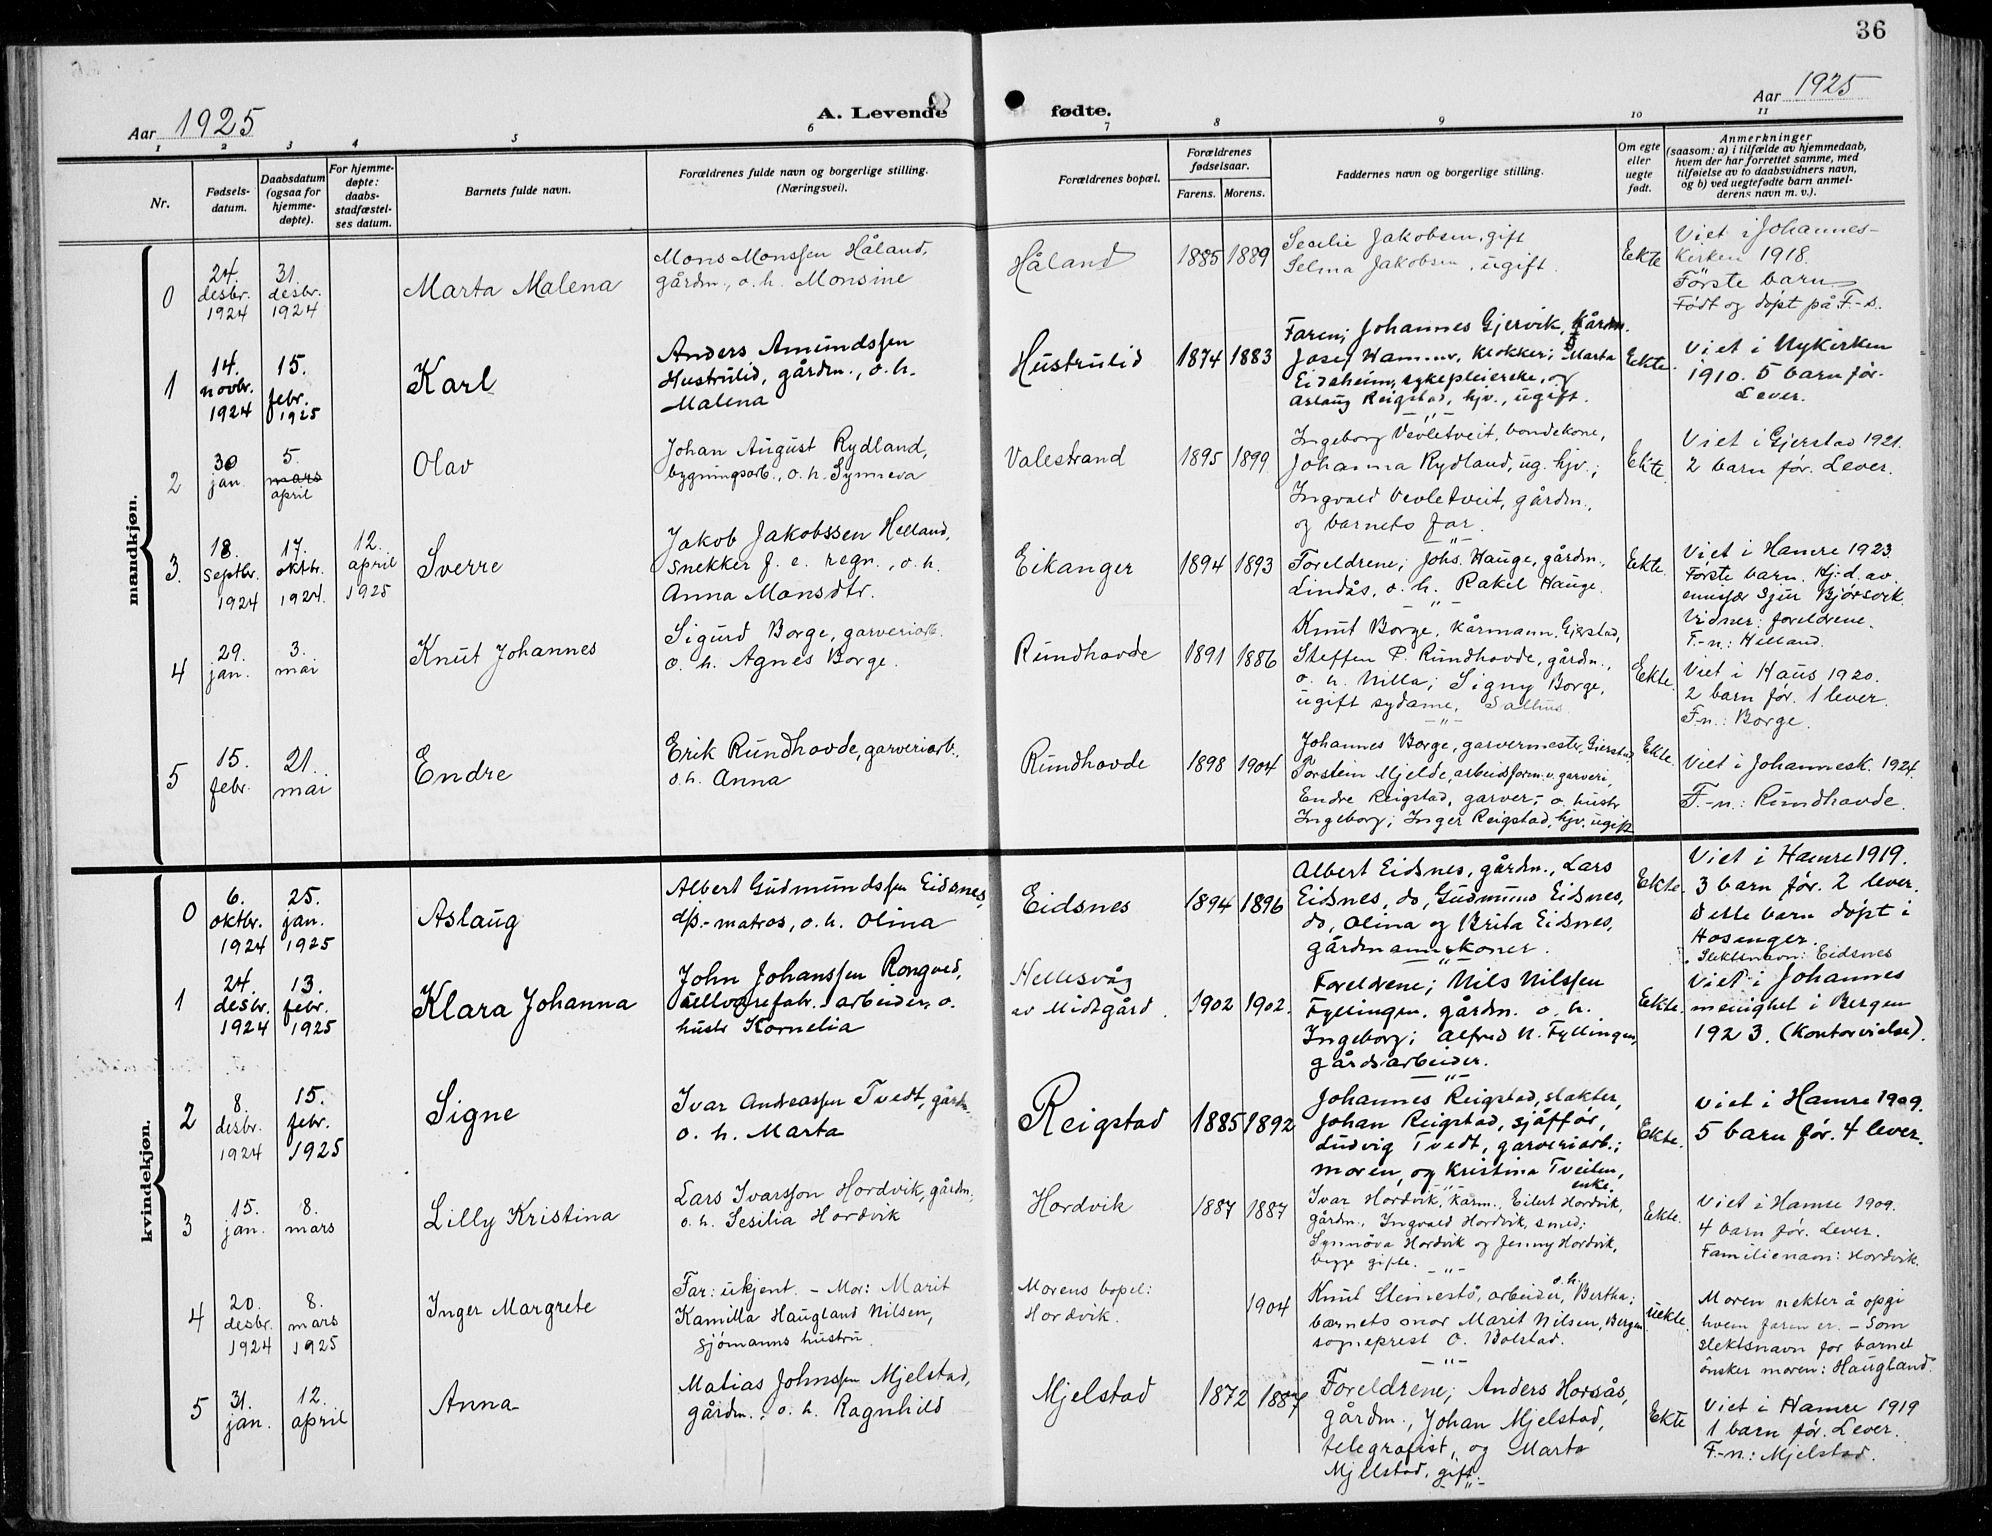 36
Aar 1925
A. Levende fødte.
Aar 1925
1 2 3 4 5 6 7 8 9 10 11
Nr.
Fødsels-
datum.
Daabsdatum
(ogsaa for
hjemme-
døpte).
For hjemme-
døpte:
daabs-
stadfæstel-
ses datum.
Barnets fulde navn.
Forældrenes fulde navn og borgerlige stilling.
(Næringsvei).
Forældrenes bopæl.
Forældrenes
fødselsaar.
Farens. Morens.
Faddernes navn og borgerlige stilling.
Om egte
eller
uegte
født.
Anmerkninger
(saasom: a) i tilfælde av hjemmedaab,
hvem der har forrettet samme, med
tilføielse av to daabsvidners navn,
og b) ved uegtefødte barn anmel-
derens navn m. v.).
mandkjøn.
0
24.
desbr.
1924
31.
desbr.
1924
Marta Malena
Mons Monssen Håland,
gårdm., o. h. Monsine
Håland
1885 1889
Secelie Jakobsen, gift
Selma Jakobsen, ugift.
Ekte
Viet i Johannes-
kirken 1918.
Første barn
Født og døpt på F-s.
1
14.
novbr.
1924
15.
febr.
1925
Karl
Anders Amundssen
Hustrulid, gårdm., o. h.
Malena
Hustrulid
1874 1883
Faren; Johannes Gjervik, kårdm.
Josef Hammer, klokker; Marta
Eidsheim, sykepleierske, og
Aslaug Reigstad, hjv., ugift.
Ekte.
Viet i Nykirken
1910. 5 barn før.
Lever.
2
30
jan.
5.
mars
april
Olav
Johan August Rydland,
bygningsarb., o. h. Synneva
Valestrand
1895 1899
Ingeborg Vevletveit, bondekone,
Johanna Rydland, ug. hjv.;
Ingvald Vevletveit, gårdm.,
og barnets far.
Ekte.
Viet i Gjerstad 1921.
2 barn før. Lever.
3.
18.
septbr.
1924
17.
oktbr.
1924.
12.
april
1925
Sverre
Jakob Jakobssen Helland,
snekker f. e. regn., o. h.
Anna Monsdtr.
Eikanger
1894 1893
Foreldrene; Johs. Hauge, gårdm.,
Lindås, o. h. Rakel Hauge.
Ekte.
Viet i Hamre 1923
Første barn. Hj.-d. av
emissær Sjur Bjørsvik.
Vidner: foreldrene.
F.-n.: Helland.
4
29.
jan.
3.
mai
Knut Johannes
Sigurd Borge, garveriarb.
o. h. Agnes Borge.
Rundhovde
1891 1886
Knut Borge, kårmann, Gjerstad,
Steffen P. Rundhovde, gårdm.,
o. h. Nilla; Signy Borge,
ugift sydame, Salhus.
Ekte.
Viet i Haus 1920.
2 barn før. 1 lever.
F.n.: Borge.
5
15.
febr.
21.
mai
Endre
Erik Rundhovde, garveriarb.
o. h. Anna
Rundhovde
1898 1904
Johannes Borge, garvermester, Gjerstad
Torstein Mjelde, arbeidsform. v. garveri,
Endre Reigstad, garver, o. hustr
Ingeborg; Inger Reigstad, hjv. ugift
Ekte.
Viet i Johannesk. 1924.
F.-n.: Rundhovde.
kvindekjøn.
0
6.
oktbr.
1924
25.
jan.
1925
Aslaug
Albert Gudmundssen Eidsnes,
d/s.-matros, o. h. Olina
Eidsnes
1894 1896
Albert Eidsnes, gårdm., Lars
Eidsnes, do, Gudmund Eidsnes,
do, Olina og Brita Eidsnes,
gårdmannskoner.
Ekte.
Viet i Hamre 1919.
3 barn før. 2 lever.
Dette barn døpt i
Hosanger.
Slektsnavn: Eidsnes
1
24.
desbr.
1924
13.
febr.
1925
Klara Johanna
John Johanssen Rongved,
ullvarefabr. arbeider, o.
hustr Kornelia
Hellesvåg
av Midtgård.
1902 1902.
Foreldrene; Nils Nilssen
Fyllingen, gårdm. o. h.
Ingeborg; Alfred N. Fyllingen,
gårdsarbeider.
Ekte.
Viet i Johannes
menighet i Bergen
1923. (Kontorvielse).
2
8.
desbr.
1924
15.
febr.
1925
Signe
Ivar Andreassen Tvedt, gårdm.
o. h. Marta
Reigstad
1885 1892
Johannes Reigstad, slakter,
Johan Reigstad, sjåffør,
Ludvig Tvedt, garveriarb.;
moren, og Kristina Tveiten,
enke.
Ekte.
Viet i Hamre 1909.
5 barn før. 4 lever.
3
15.
jan.
8.
mars
Lilly Kristina
Lars Ivarsson Hordvik, gårdm.
o. h. Sesilia Hordvik
Hordvik
1887 1887
Ivar Hordvik, kårm., Eilert Hordvik,
gårdm., Ingvald Hordvik, smed;
Synnöva Hordvik og Jenny Hordvik,
begge gifte.
Ekte.
Viet i Hamre 1909.
4 barn før. Lever.
Familienavn: Hordvik.
4
20.
desbr.
1924
8.
mars
1925
Inger Margrete
Far: ukjent. – Mor: Marit
Kamilla Haugland Nilsen,
sjømanns hustru.
Morens bopel:
Hordvik.
1904
Knut Steinestö, arbeider, o. h. Bertha;
barnets mor Marit Nilsen, Bergen
sogneprest O. Bolstad.
uekte.
Moren nekter å opgi
hvem faren er. – Som
slektsnavn for barnet
ønsker moren: Haugland.
5
31.
jan.
12.
april
Anna
Matias Johnssen Mjelstad,
gårdm., o. h. Ragnhild
Mjelstad
1872 1887
Foreldrene; Anders Horsås,
gårdm., Johan Mjelstad,
telegrafist, og Marta
Mjelstad, gift.
Ekte
Viet i Hamre 1919
1 barn før. Lever.
F.-n.: Mjelstad.